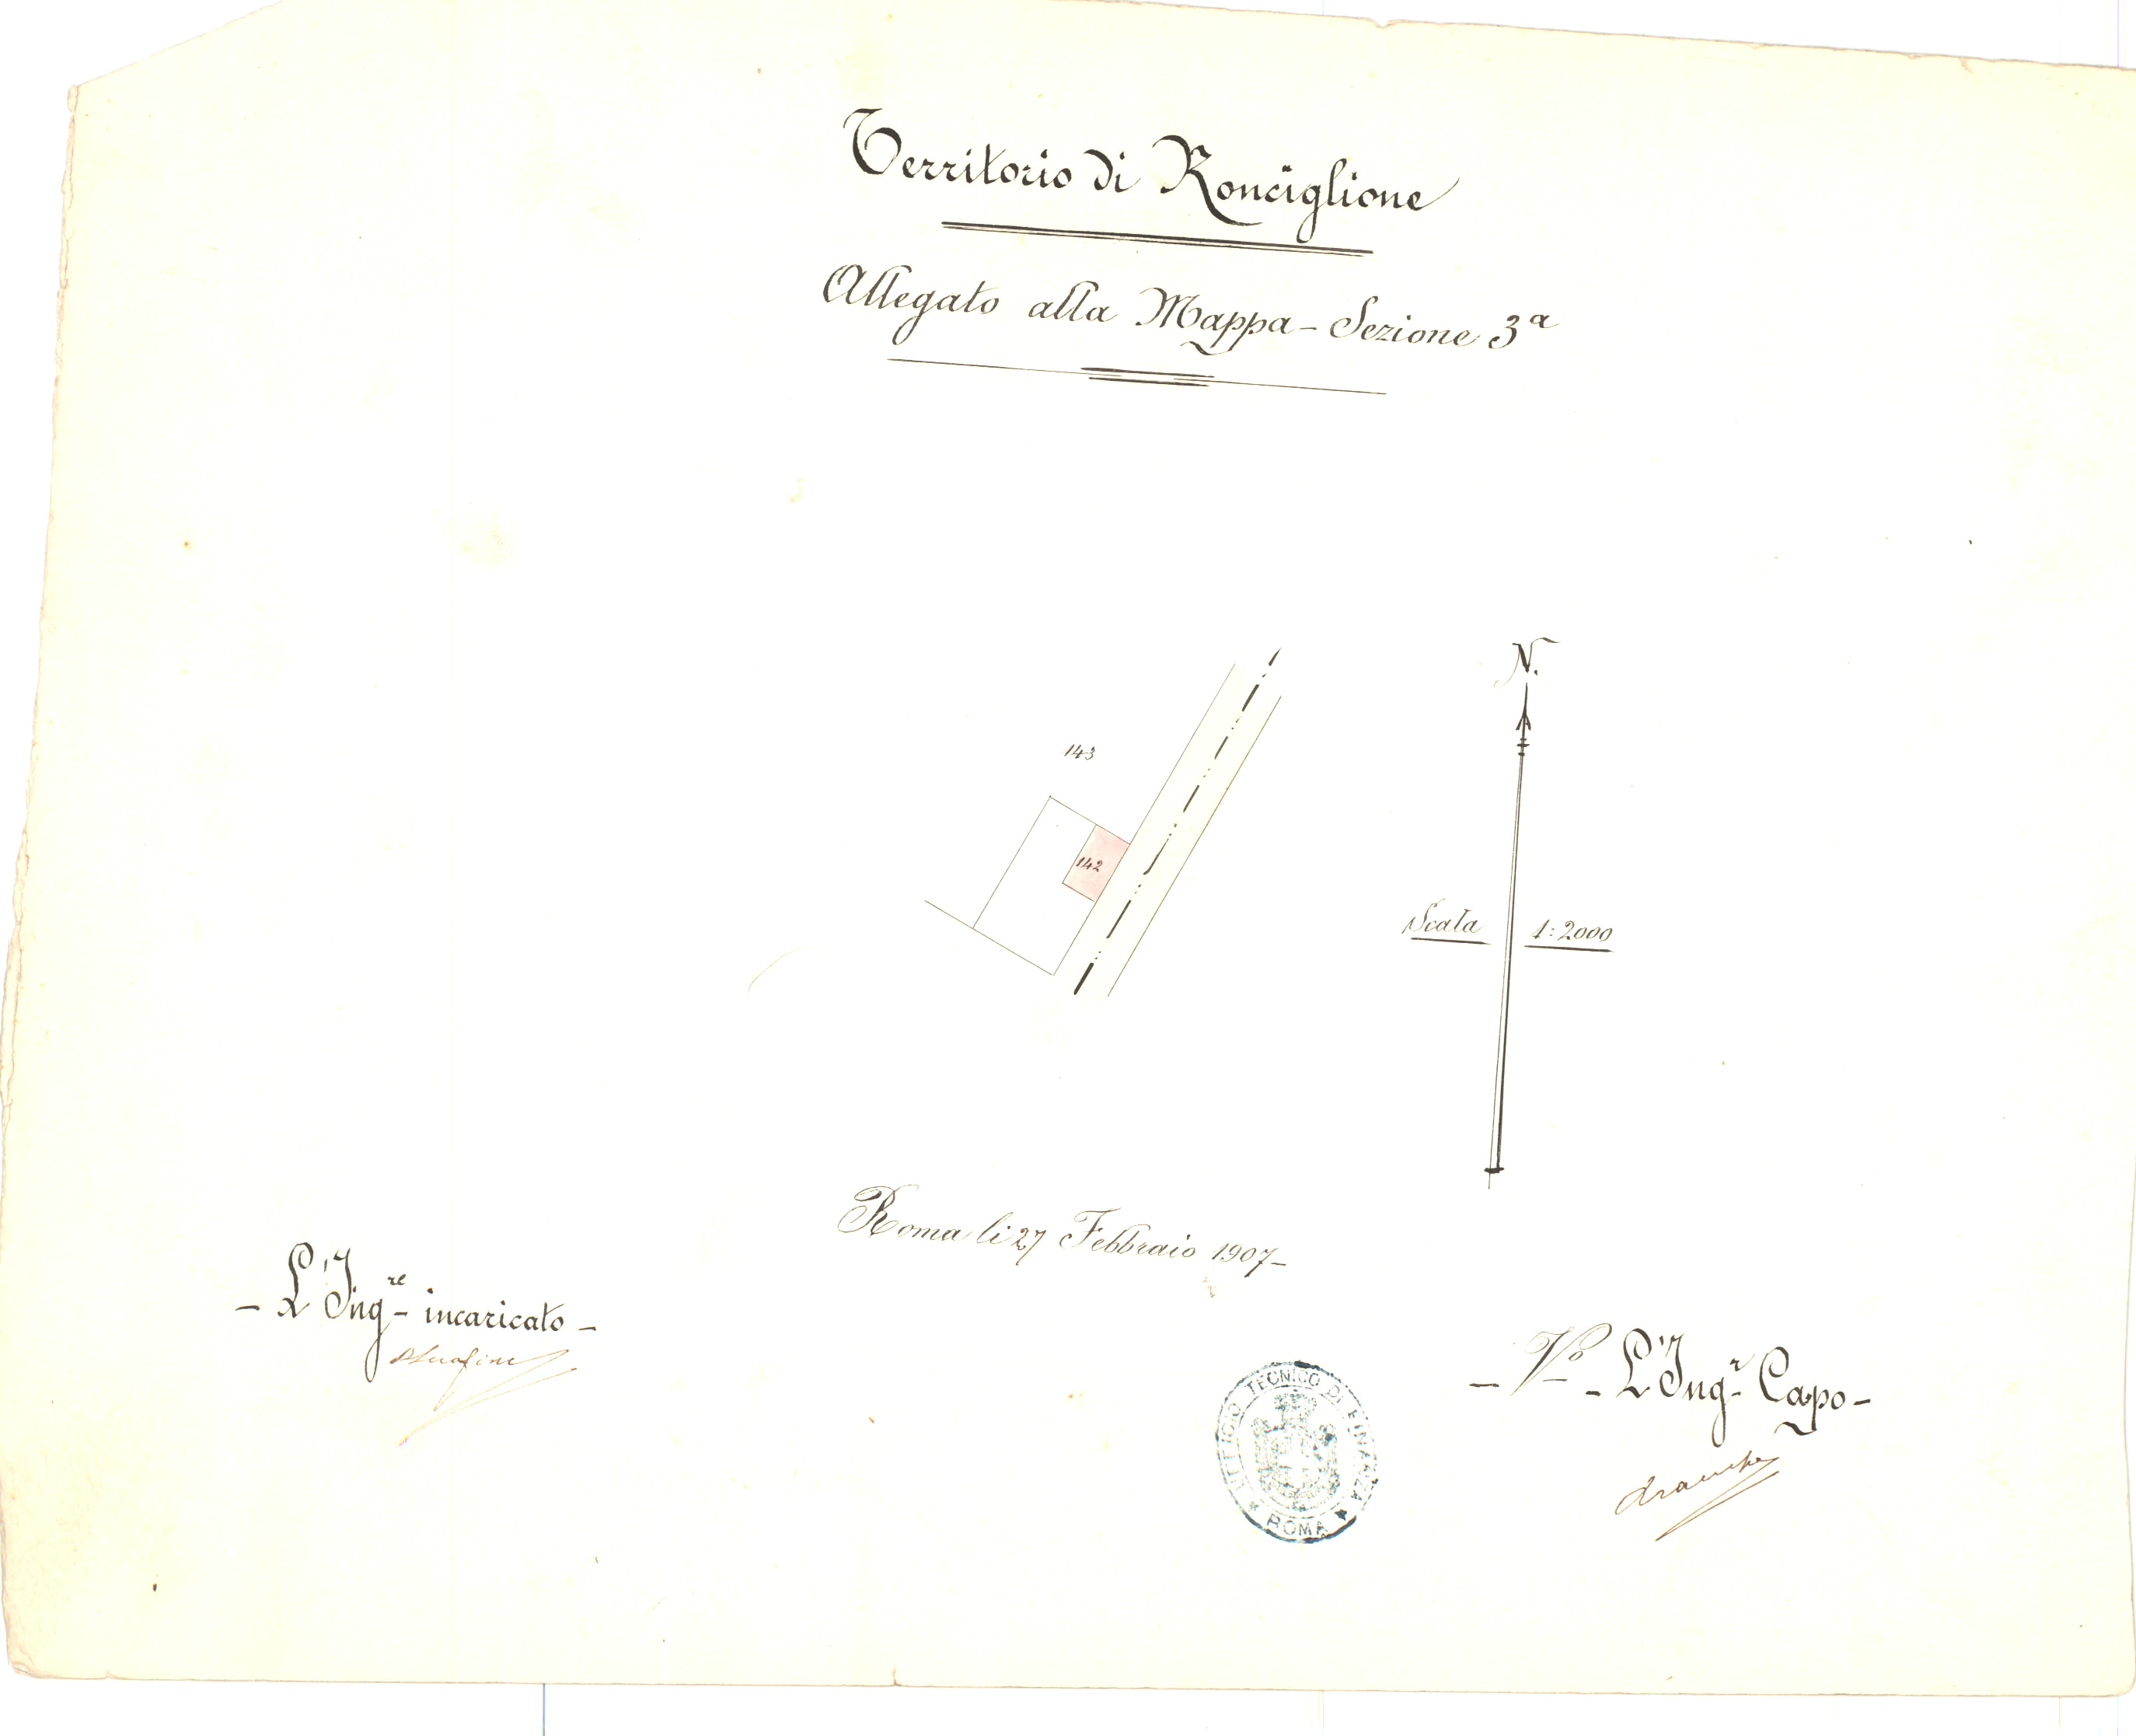 Territorio di Ronciglione
Allegato alla Mappa - Sezione 3ª
N.
143
142
Scala 1:2000
Roma li 27 Febbraio 1907-
- L'Ingʳᵉ incaricato -
- Vº - L'Ingʳ Capo -
UFFICIO TECNICO DI FINANZA
* ROMA *